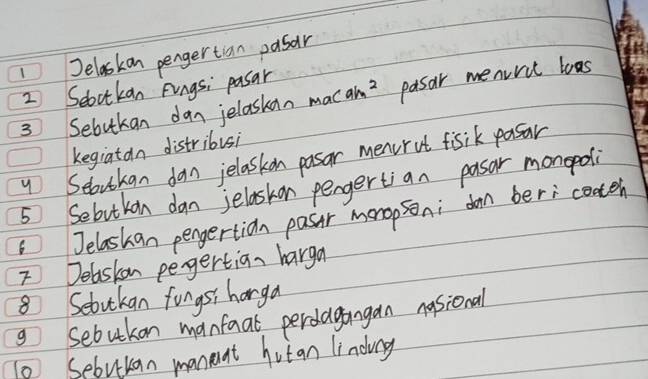 1 Jelaskan pengertian pasar
2 Sebutkan Fungsi pasar
3 Sebutkan dan jelaskan macam² pasar menurut luas
kegiatan distribusi
4 Sebutkan dan jelaskan pasar menurut fisik pasar
5 Sebutkan dan jelaskan pengertian pasar monopoli
6 Jelaskan pengertian pasar monopsoni dan beri contoh
7 Jelaskan pengertian harga
8 Sebutkan fungsi harga
9 Sebutkan manfaat perdagangan nasional
10 Sebutkan manfaat hutan lindung